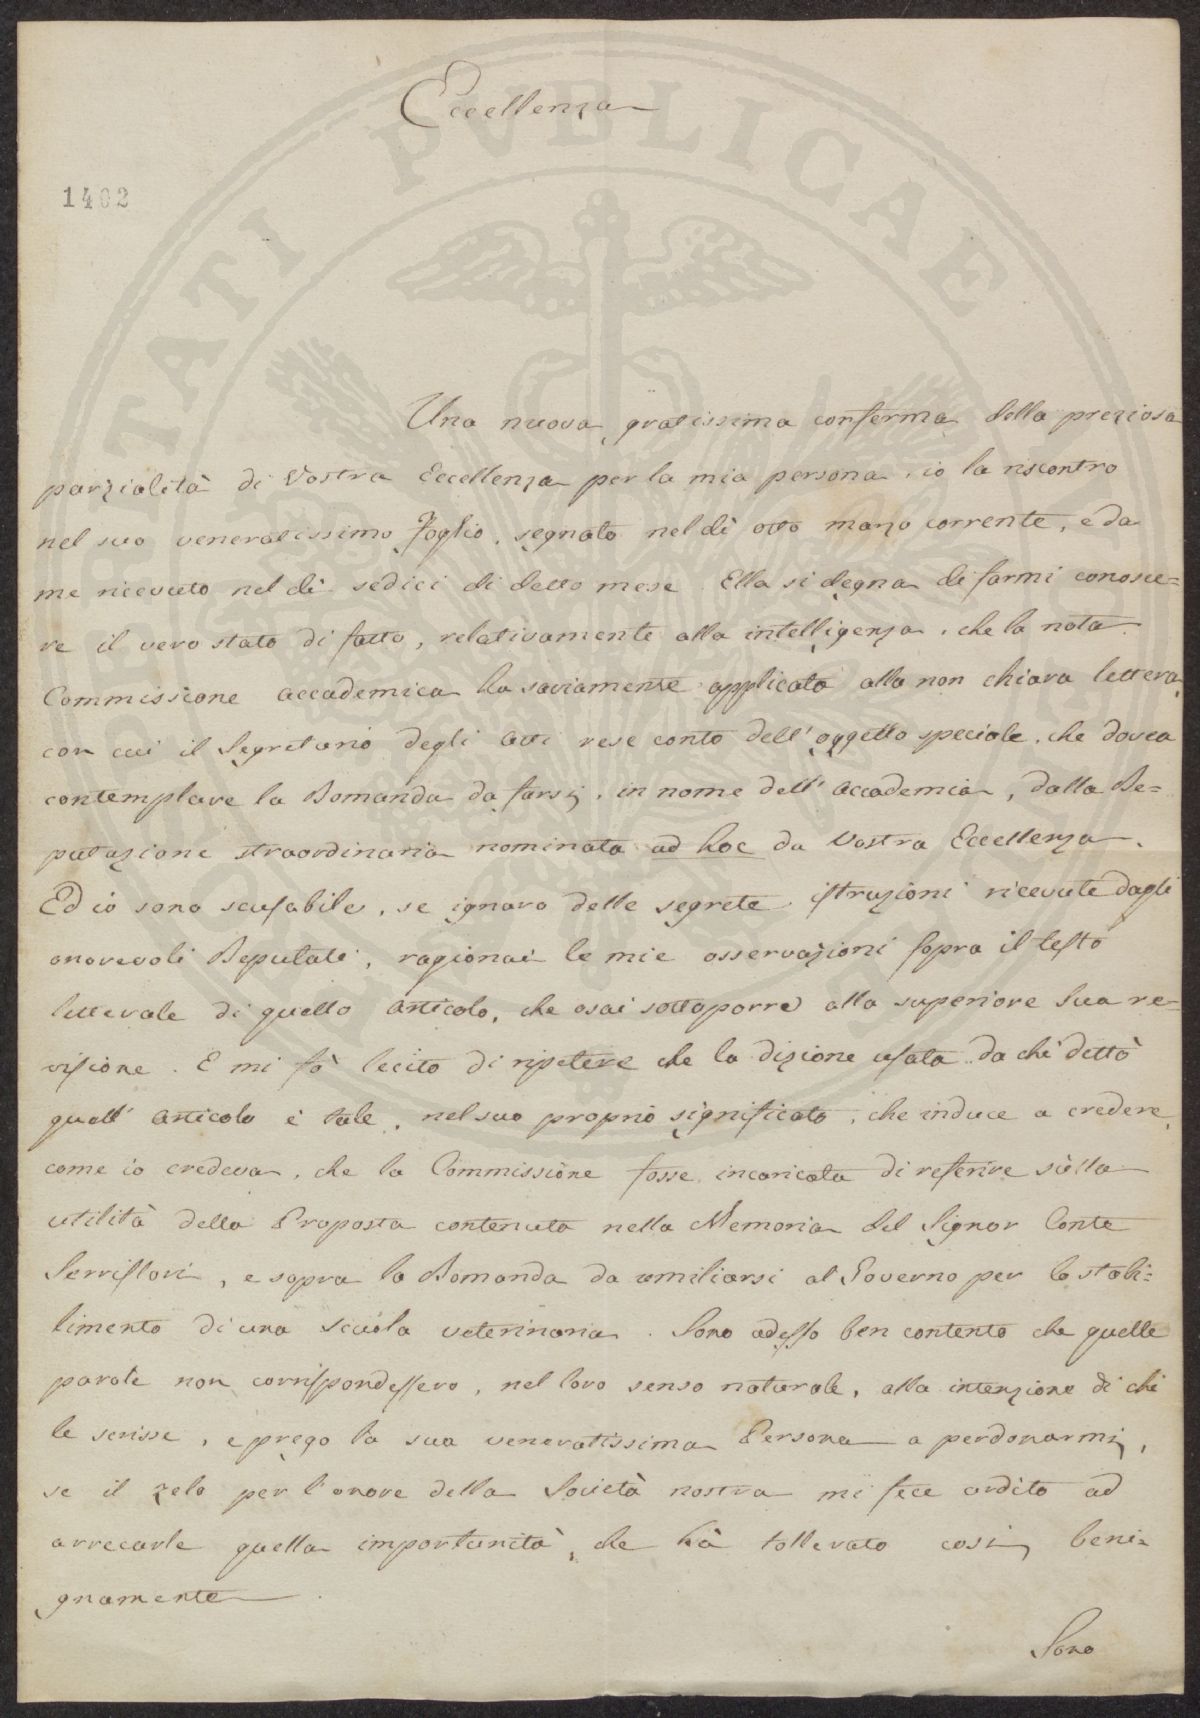 Eccellenza
1402
Una nuova gratissima conferma della preziosa
parzialità di Vostra Eccellenza per la mia persona, io la riscontro
nel suo veneratissimo Foglio, segnato nel dì otto marzo corrente, e da
me ricevuto nel dì sedici di detto mese. Ella si degna di farmi conosce=
re il vero stato di fatto, relativamente alla intelligenza, che la nota
Commissione accademica ha saviamente applicata alla non chiara lettera,
con cui il Segretario degli Atti rese conto dell' oggetto speciale, che dovea
contemplare la Domanda da farsi, in nome dell' Accademia, dalla De=
putazione straordinaria nominata ad hoc da Vostra Eccellenza.
Ed io sono scusabile, se ignaro delle segrete istruzioni ricevute dagli
onorevoli Deputati, ragionai le mie osservazioni sopra il testo
letterale di quello Articolo, che osai sottoporre alla superiore Sua re=
visione. E mi fò lecito di ripetere che la dizione usata da chi dettò
quell' Articolo è tale, nel suo proprio significato, che induce a credere,
come io credeva, che la Commissione fosse incaricata di referire sulla
utilità della Proposta contenuta nella Memoria del Signor Conte
Serristori, e sopra la Domanda da umiliarsi al Governo per lo stabi=
limento di una scuola veterinaria. Sono adesso ben contento che quelle
parole non corrispondessero, nel loro senso naturale, alla intenzione di chi
le scrisse, e prego la sua veneratissima Persona a perdonarmi,
se il zelo per l'onore della Società nostra mi fece ardito ad
arrecarle quella importunità, che hà tollerato così beni=
gnamente.
Sono
PVBLICAE
TATI